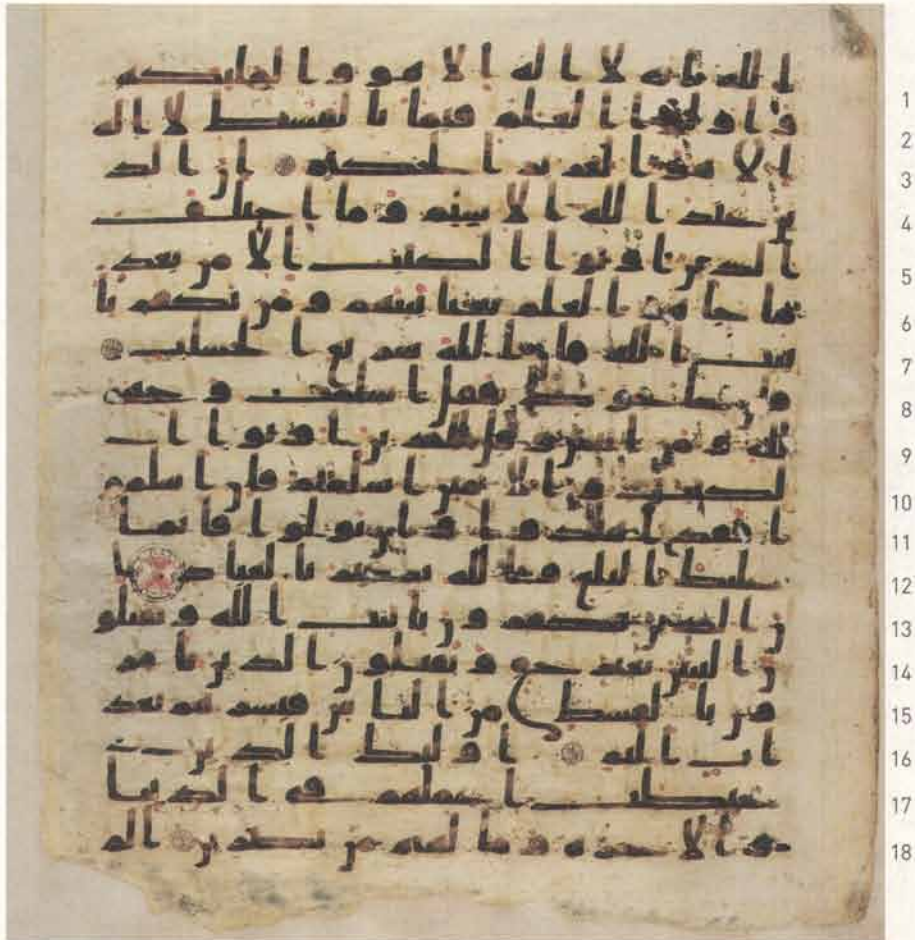 1 الله انه لا اله الا هو والمليكه
2 واولوا العلم قيما بالقسط لا اله
3 الا هو العزيز الحكيم ان الد
4 ين عند الله الا سلم وما اختلف
5 الذين اوتوا الكتب الا من بعد
6 ما جاهم العلم بغيا بينهم ومن يكفر با
7 يت الله فان الله سريع الحساب
8 فان حاجوك فقل اسلمت وجهي
9 لله ومن اتبعن وقل للذين اوتوا ا
10 لكتب والامين اسلمتم فان اسلمو
11 ا فقد اهتدوا وان تولوا فانما
12 عليك البلغ والله بصير بالعباد ا
13 ن الذين يكفرون بايت الله ويقتلو
14 ن النبين بغير حق ويقتلون الذين يامر
15 ون بالقسط من الناس فبشرهم بعذ
16 اب اليم اوليك الذين
17 حبطت اعملهم في الدنيا
18 والاخره وما لهم من نصرين الم